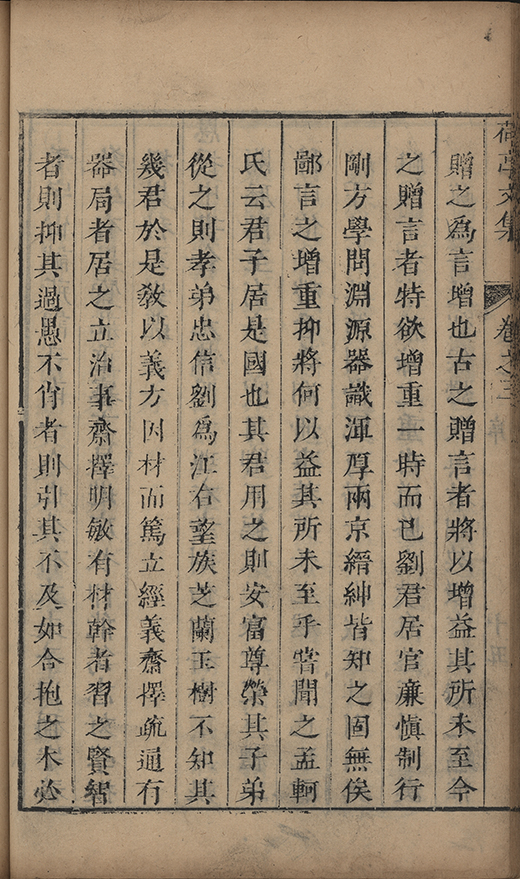 荷亭文集 卷之三
贈之為言增也古之贈言者將以增益其所未至今
之贈言者特欲增重一時而已劉君居官廉慎制行
剛方學問淵源器識渾厚兩京縉紳皆知之固無俟
鄙言之增重抑將何以益其所未至乎甞聞之孟軻
氏云君子居是國也其君用之則安富尊榮其子弟
從之則孝弟忠信劉為江右望族芝蘭玉樹不知其
幾君於是教以義方因材而篤立經義齋擇疏通有
器局者居之立治事齋擇明敏有材幹者習之賢智
者則抑其過愚不肖者則引其不及如合抱之木必